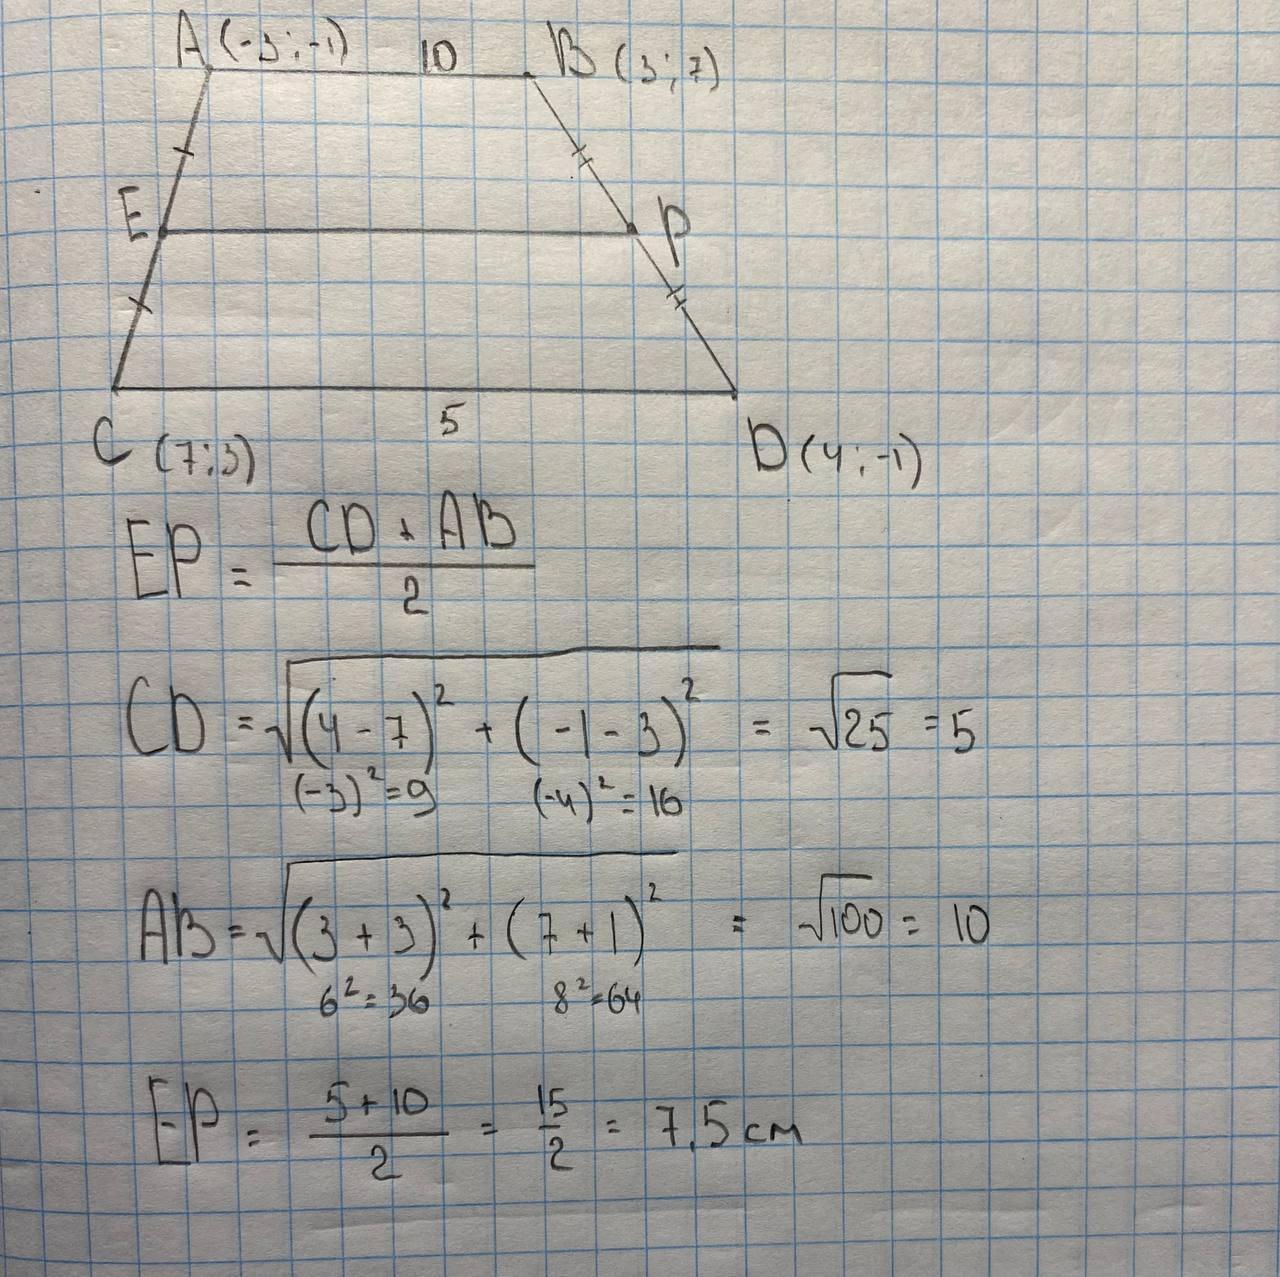 A (-3;-1) 10 B (3;7)
E P
5
C (7;3) D (4;-1)
EP = \frac{CD + AB}{2}
CD = \sqrt{(4-7)^2 + (-1-3)^2} = \sqrt{25} = 5
(-3)^2=9 (-4)^2=16
AB = \sqrt{(3+3)^2 + (7+1)^2} = \sqrt{100} = 10
6^2=36 8^2=64
EP = \frac{5+10}{2} = \frac{15}{2} = 7,5 см